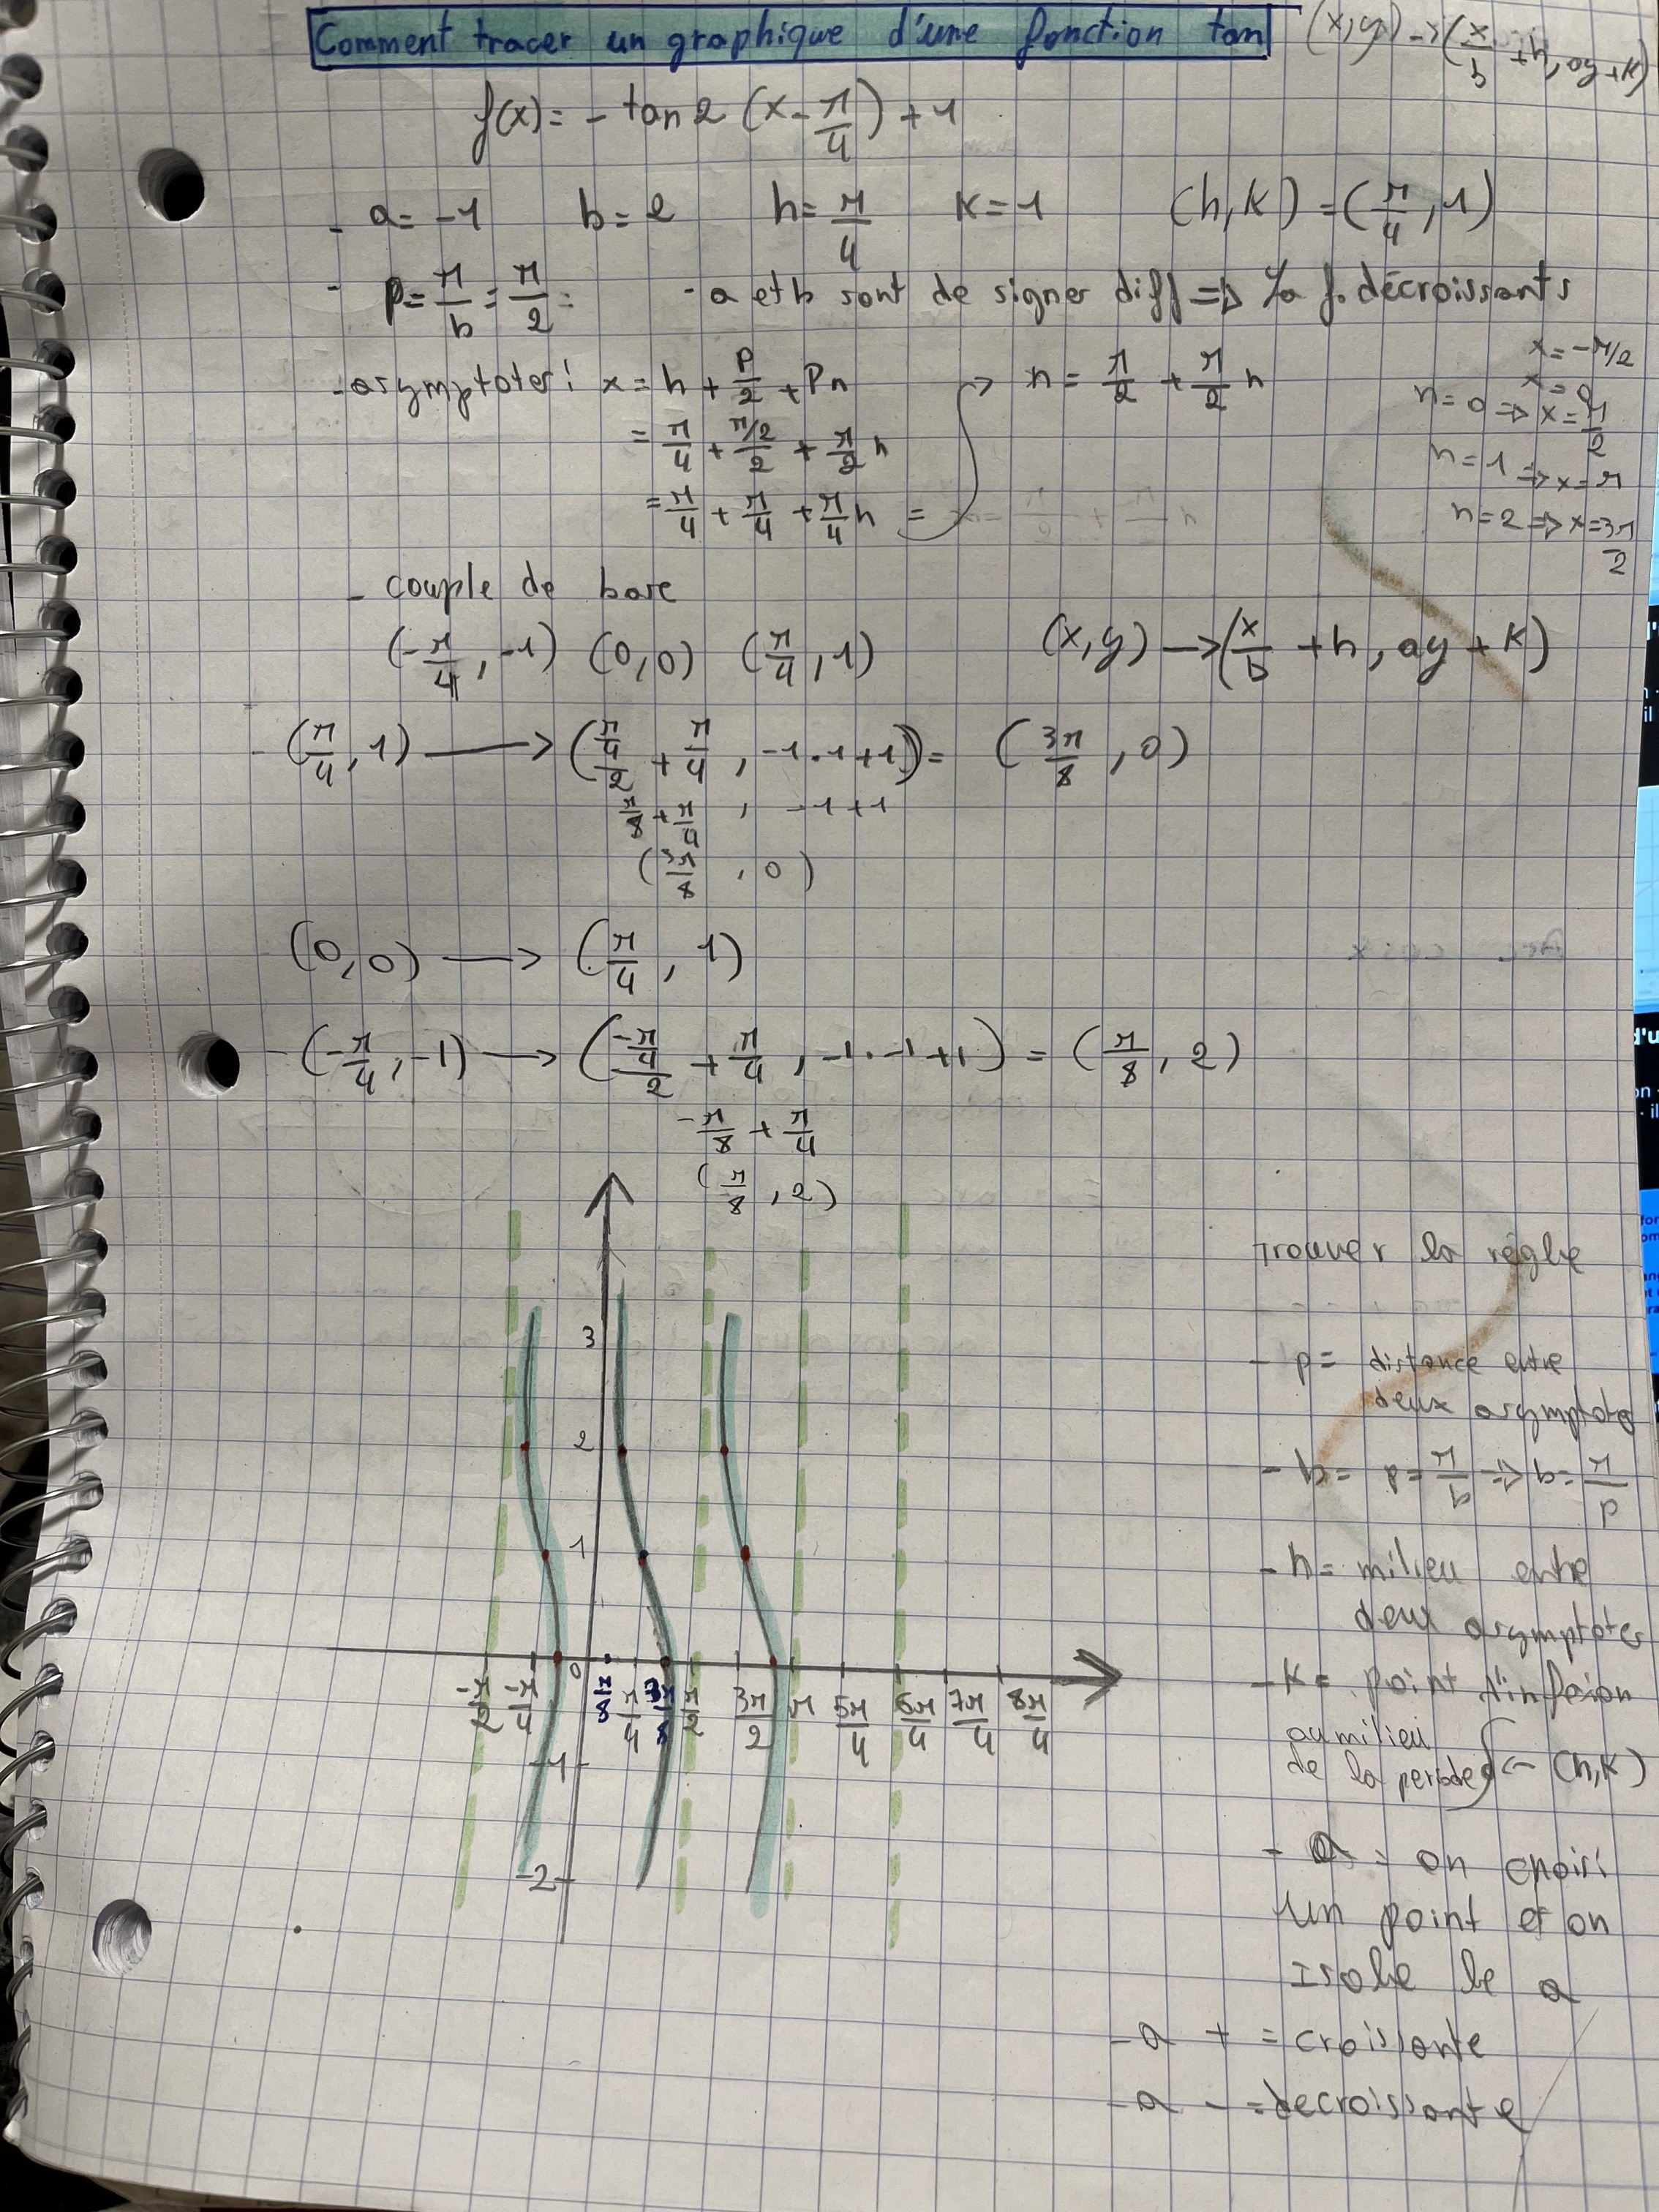 Comment tracer un graphique d'une fonction tan
(x,y) -> (x/b +h, ay+k)
f(x)= - tan 2 (x - π/4) + 1
- a= -1 b= 2 h= π/4 K=1 (h,K) = (π/4, 1)
- p= π/b = π/2 = - a et b sont de signer diff => La f. décroissants
- asymptoter: x = h + P/2 + Pn -> n = π/2 + π/2 n
= π/4 + π/2/2 + π/2 n
= π/4 + π/4 + π/4 n =
x= -π/2
x= 0
n=0 => x= π/2
n=1 => x= π
n=2 => x= 3π/2
- couple de base
(-π/4, -1) (0,0) (π/4, 1) (x,y) -> (x/b + h, ay + K)
- (π/4, 1) -> (π/4/2 + π/4, -1·1+1) = (3π/8, 0)
π/8 + π/4, -1+1
(3π/8, 0)
(0,0) -> (π/4, 1)
- (-π/4, -1) -> (-π/4/2 + π/4, -1·-1+1) = (π/8, 2)
-π/8 + π/4
(π/8, 2)
3
2
1
0
-π/2 -π/4 π/8 π/4 3π/8 π/2 3π/2 π 5π/4 6π/4 7π/4 8π/4
-1
-2
Trouver la règle
- p= distance entre
deux asymptotes
- b= p= π/b => b= π/p
- h= milieu entre
deux asymptoter
- K= point d'inflexion
au milieu
de la période <- (h,K)
- a = on choisi
un point et on
isole le a
- a + = croissante
- a - = décroissante